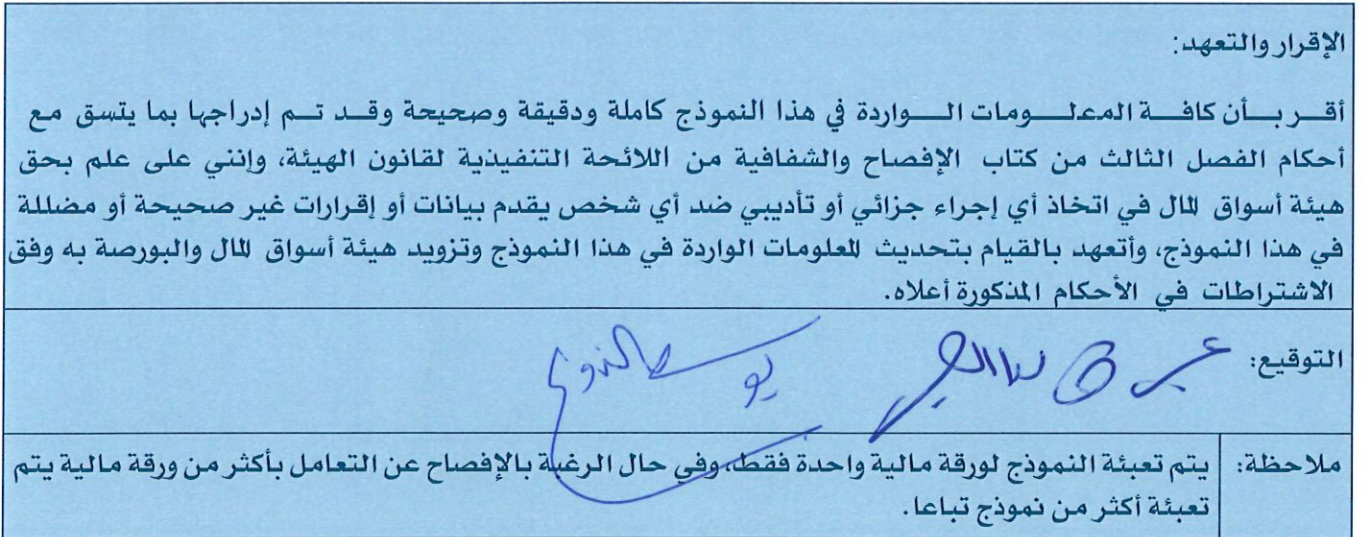 الإقرار والتعهد:
أقــر بــأن كافــة المعلــومات الــواردة في هذا النموذج كاملة ودقيقة وصحيحة وقــد تــم إدراجها بما يتسق مع
أحكام الفصل الثالث من كتاب الإفصاح والشفافية من اللائحة التنفيذية لقانون الهيئة، وإنني على علم بحق
هيئة أسواق المال في اتخاذ أي إجراء جزائي أو تأديبي ضد أي شخص يقدم بيانات أو إقرارات غير صحيحة أو مضللة
في هذا النموذج، وأتعهد بالقيام بتحديث المعلومات الواردة في هذا النموذج وتزويد هيئة أسواق المال والبورصة به وفق
الاشتراطات في الأحكام المذكورة أعلاه.
التوقيع:
ملاحظة: يتم تعبئة النموذج لورقة مالية واحدة فقط، وفي حال الرغبة بالإفصاح عن التعامل بأكثر من ورقة مالية يتم
تعبئة أكثر من نموذج تباعا.